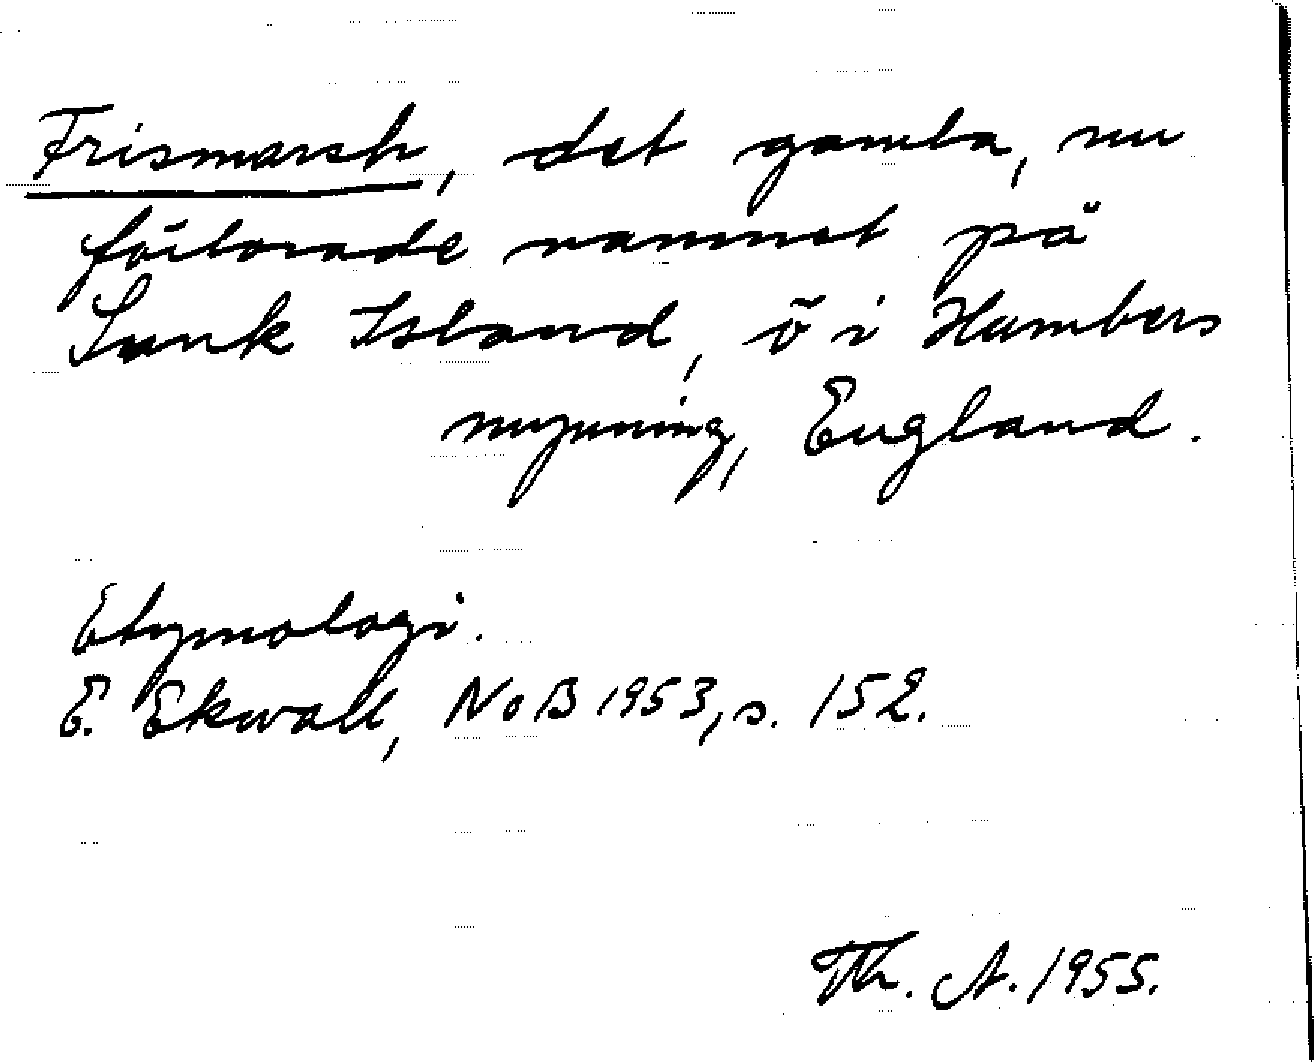 Frismarsh, det gamla, nu
förlorade namnet på
Sunk Island, ö i Humbers
mynning, England.
Etymologi.
E. Ekwall, NoB 1953, s. 152.
Th. A. 1955.